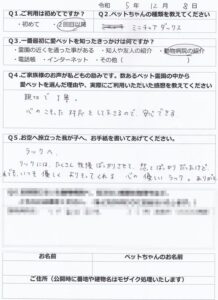 令和 5年 12月 8日
Q1.ご利用は初めてですか？
・初めて ・2回目以降
Q2.ペットちゃんの種類を教えてください
ミニチュアダックス
Q3.一番最初に愛ペットを知ったきっかけは何ですか？
・霊園の近くを通った事がある ・知人や友人の紹介 ・動物病院の紹介
・電話帳 ・インターネット ・その他（ ）
Q4.ご家族様のお声が私どもの励みです。数あるペット霊園の中から
愛ペットを選んだ理由や、実際にご利用いただいた感想を教えてください。
親切で丁寧。
心のこもった対応をして
安心できる
Q5.お空へ旅立った我が子へ、お手紙を書いてあげてください。
ラックへ
ラックには、たくさん
いつも優しく
心の優しいラック。ありがとう
お名前
ペットちゃんのお名前
ご住所（公開時に番地や建物名はモザイク処理いたします）